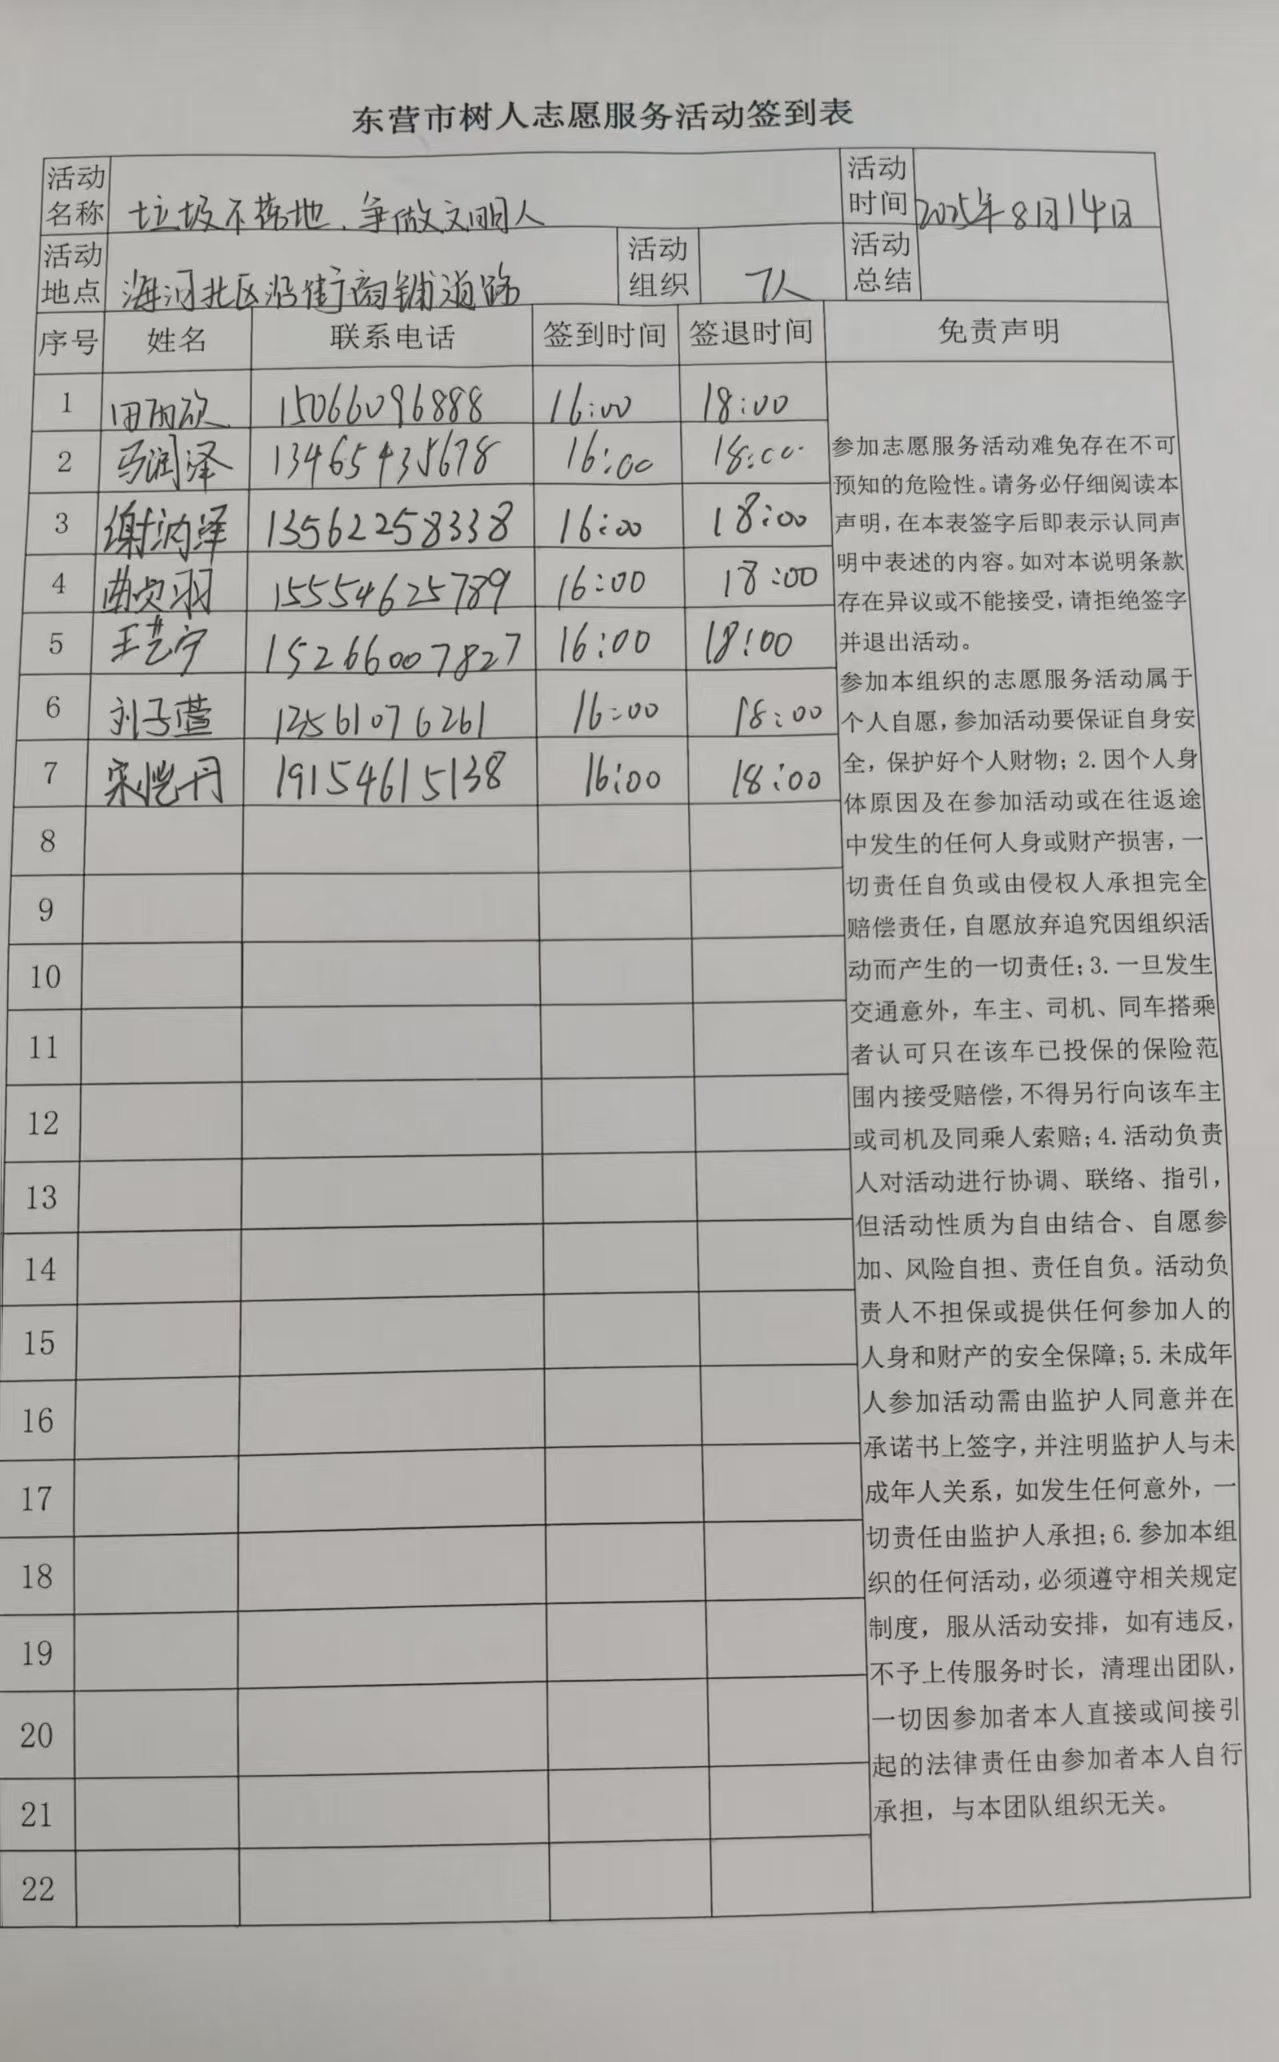 东营市树人志愿服务活动签到表
活动名称 垃圾不落地、争做文明人 活动时间 2025年8月14日
活动地点 海河北区沿街商铺道路 活动组织 7人 活动总结
序号 姓名 联系电话 签到时间 签退时间 免责声明
1 田雨欣 15066096888 16:00 18:00
2 马润泽 13465435678 16:00 18:00
3 谢沩泽 13562258338 16:00 18:00
4 曲贞羽 15554625789 16:00 18:00
5 王艺宁 15266007827 16:00 18:00
6 刘子萱 13561076261 16:00 18:00
7 宋恺丹 19154615138 16:00 18:00
8
9
10
11
12
13
14
15
16
17
18
19
20
21
22
参加志愿服务活动难免存在不可
预知的危险性。请务必仔细阅读本
声明，在本表签字后即表示认同声
明中表述的内容。如对本说明条款
存在异议或不能接受，请拒绝签字
并退出活动。
参加本组织的志愿服务活动属于
个人自愿，参加活动要保证自身安
全，保护好个人财物；2.因个人身
体原因及在参加活动或在往返途
中发生的任何人身或财产损害，一
切责任自负或由侵权人承担完全
赔偿责任，自愿放弃追究因组织活
动而产生的一切责任；3.一旦发生
交通意外，车主、司机、同车搭乘
者认可只在该车已投保的保险范
围内接受赔偿，不得另行向该车主
或司机及同乘人索赔；4.活动负责
人对活动进行协调、联络、指引，
但活动性质为自由结合、自愿参
加、风险自担、责任自负。活动负
责人不担保或提供任何参加人的
人身和财产的安全保障；5.未成年
人参加活动需由监护人同意并在
承诺书上签字，并注明监护人与未
成年人关系，如发生任何意外，一
切责任由监护人承担；6.参加本组
织的任何活动，必须遵守相关规定
制度，服从活动安排，如有违反，
不予上传服务时长，清理出团队，
一切因参加者本人直接或间接引
起的法律责任由参加者本人自行
承担，与本团队组织无关。